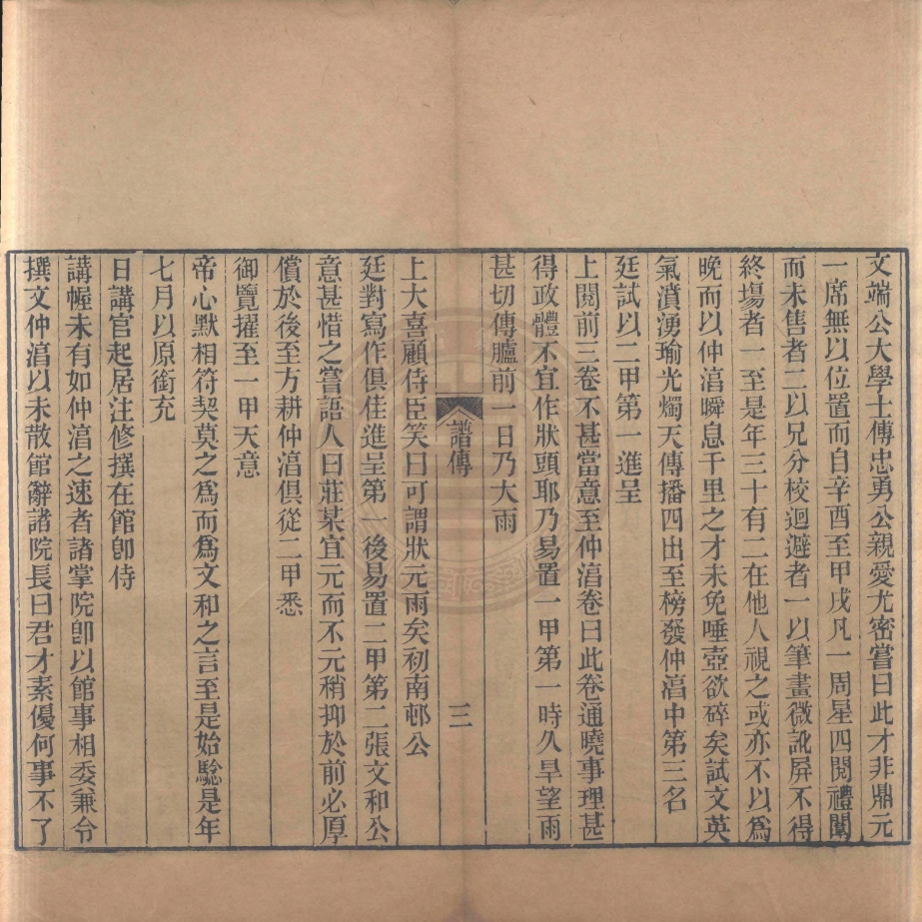 文端公大學士傅忠勇公親愛尤密嘗曰此才非鼎元
一席無以位置而自辛酉至甲戌凡一周星四閱禮闈
而未售者二以兄分校迴避者一以筆畫微訛屏不得
終場者一至是年三十有二在他人視之或亦不以為
晚而以仲淓瞬息千里之才未免唾壺欲碎矣試文英
氣濆湧瑜光燭天傳播四出至榜發仲淓中第三名
廷試以二甲第一進呈
上閱前三卷不甚當意至仲淓卷曰此卷通曉事理甚
得政體不宜作狀頭耶乃易置一甲第一時久旱望雨
甚切傳臚前一日乃大雨
譜傳
三
上大喜顧侍臣笑曰可謂狀元雨矣初南邨公
廷對寫作俱佳進呈第一後易置二甲第二張文和公
意甚惜之嘗語人曰莊某宜元而不元稍抑於前必厚
償於後至方耕仲淓俱從二甲悉
御覽擢至一甲天意
帝心默相符契莫之爲而爲文和之言至是始騐是年
七月以原銜充
日講官起居注修撰在館卽侍
講幄未有如仲淓之速者諸掌院卽以館事相委兼令
撰文仲淓以未散館辭諸院長曰君才素優何事不了